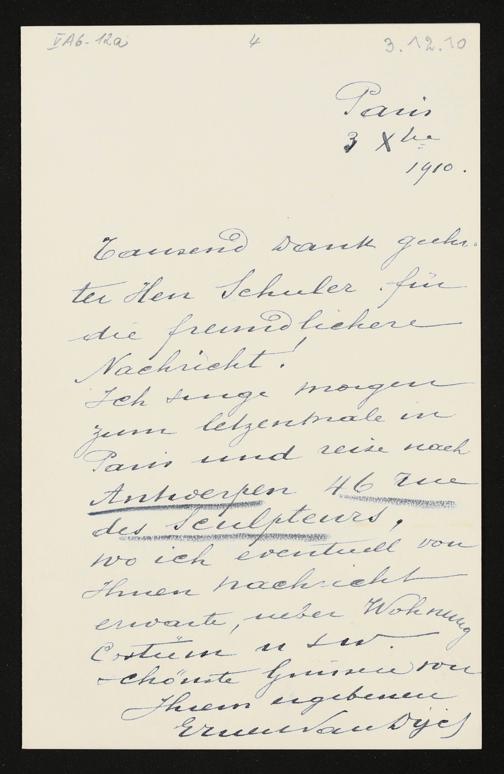 VA6-12a 4 3.12.10
Paris
3 Xbre
1910.
Tausend Dank geehr-
ter Herr Schuler für
die freundlichere
Nachricht!
Ich singe morgen
zum letzenmale in
Paris und reise nach
Antwerpen 46 rue
des Sculpteurs,
wo ich eventuell von
Ihnen nachricht
erwarte, ueber Wohnung
Costüm u s w.
schönste Grüssen von
Ihrem ergebenen
Ernest Van Dyck